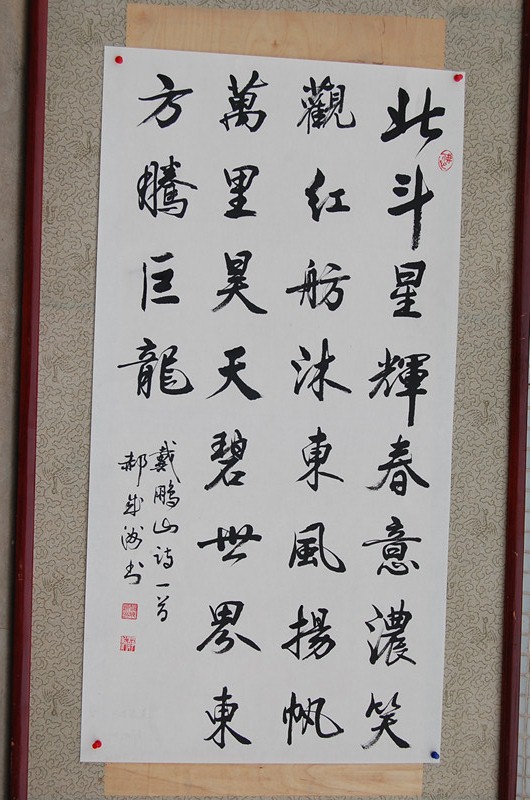 北斗星輝春意濃笑
觀红舫沐東風揚帆
萬里昊天碧世界東
方騰巨龍
戴鵬山诗一首
郝成海书